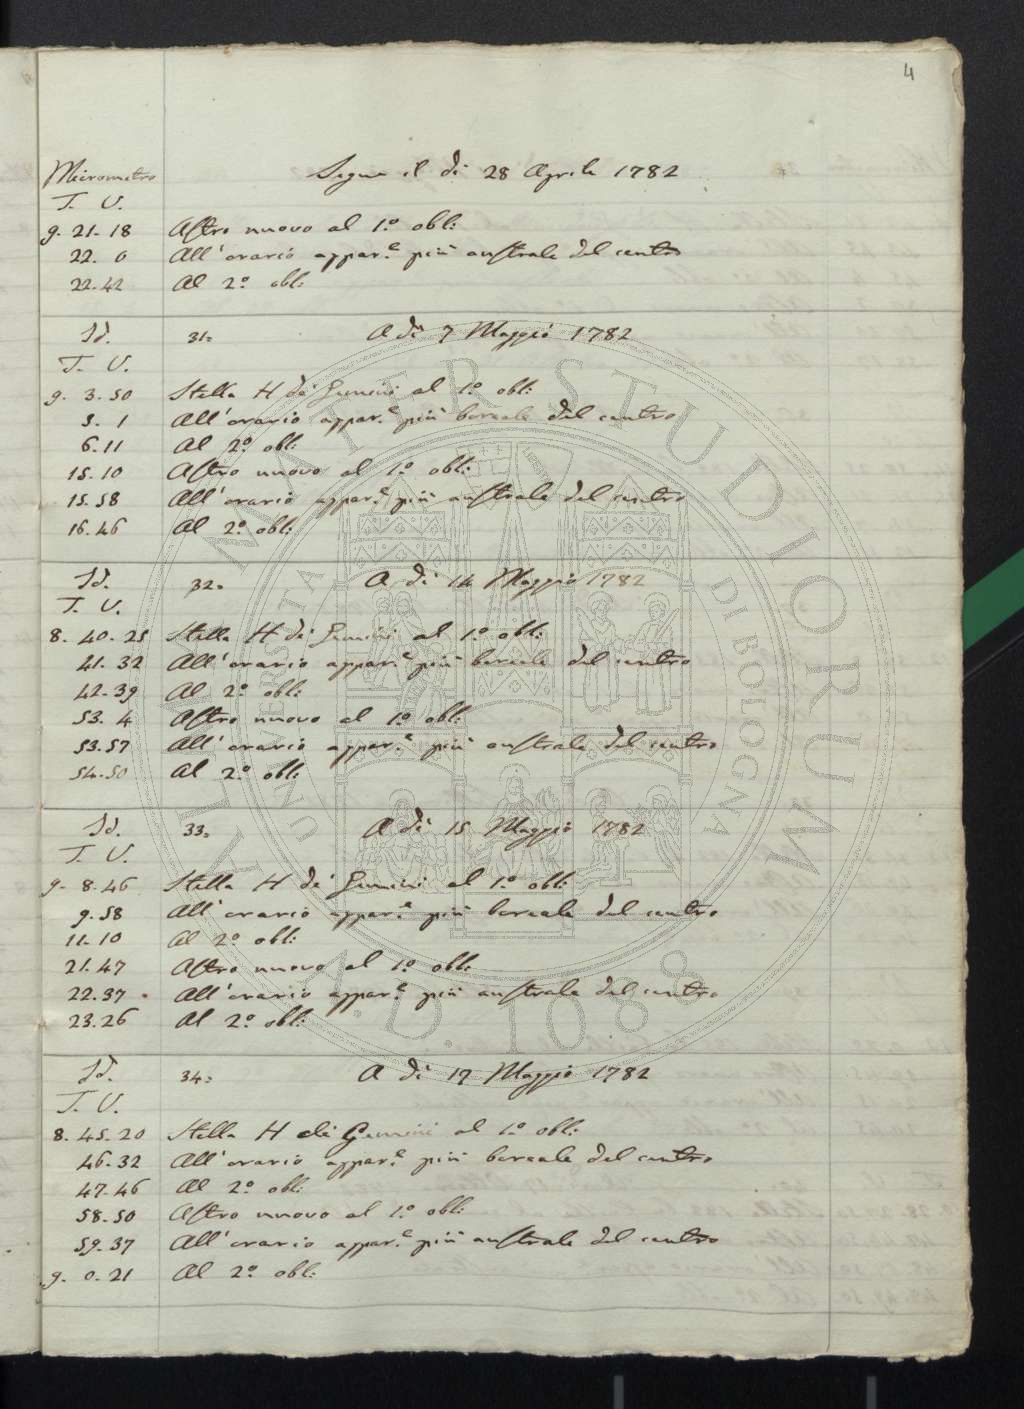 4
Micrometro Segue il di 28 Aprile 1782
T. V.
9. 21. 18 Astro nuovo al 1.º obl:
22. 0 All'orario appar.e più australe del centro
22. 42 Al 2.º obl:
Id. 31. A di 7 Maggio 1782
T. V.
9. 3. 50 Stella H de' Gemini al 1.º obl:
5. 1 All'orario appar.e più boreale del centro
6. 11 Al 2.º obl:
15. 10 Astro nuovo al 1.º obl:
15. 58 All'orario appar.e più australe del centro
16. 46 Al 2.º obl:
Id. 32. A di 14 Maggio 1782
T. V.
8. 40. 25 Stella H de' Gemini al 1.º obl:
41. 32 All'orario appar.e più boreale del centro
42. 39 Al 2.º obl:
53. 4 Astro nuovo al 1.º obl:
53. 57 All'orario appar.e più australe del centro
54. 50 Al 2.º obl:
Id. 33. A di 15 Maggio 1782
T. V.
9. 8. 46 Stella H de' Gemini al 1.º obl:
9. 58 All'orario appar.e più boreale del centro
11. 10 Al 2.º obl:
21. 47 Astro nuovo al 1.º obl:
22. 37 All'orario appar.e più australe del centro
23. 26 Al 2.º obl:
Id. 34. A di 17 Maggio 1782
T. V.
8. 45. 20 Stella H de' Gemini al 1.º obl:
46. 32 All'orario appar.e più boreale del centro
47. 46 Al 2.º obl:
58. 50 Astro nuovo al 1.º obl:
59. 37 All'orario appar.e più australe del centro
9. 0. 21 Al 2.º obl:
ALMA MATER STUDIORUM
A.D. 1088
UNIVERSITÀ DI BOLOGNA